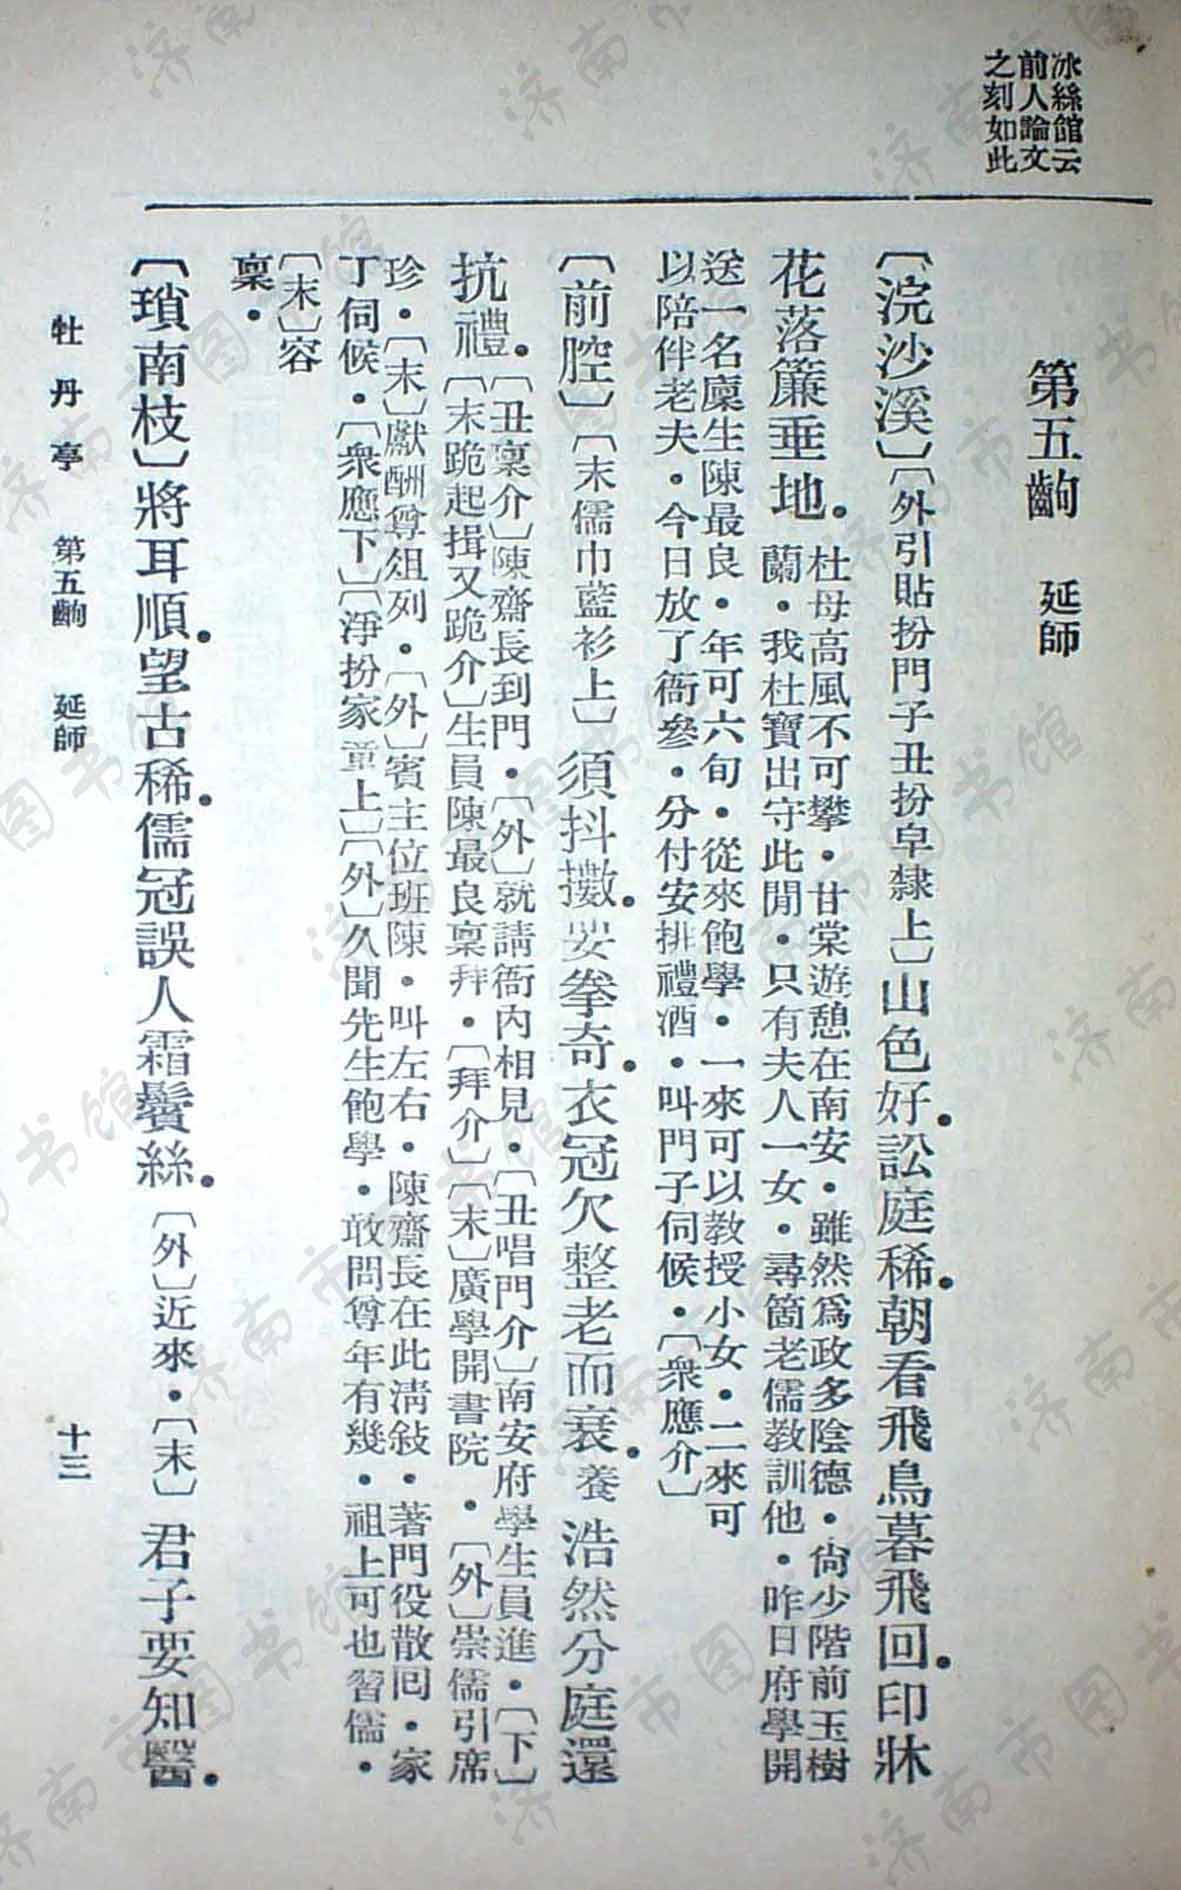 冰絲館云
前人論文
之刻如此
第五齣　延師
〔浣沙溪〕〔外引貼扮門子丑扮皁隸上〕山色好．訟庭稀．朝看飛鳥暮飛回．印牀
花落簾垂地．
杜母高風不可攀．甘棠遊憩在南安．雖然爲政多陰德．尙少階前玉樹
蘭．我杜寶出守此閒．只有夫人一女．尋箇老儒教訓他．昨日府學開
送一名廩生陳最良．年可六旬．從來飽學．一來可以教授小女．二來可
以陪伴老夫．今日放了衙參．分付安排禮酒．叫門子伺候．〔衆應介〕
〔前腔〕〔末儒巾藍衫上〕須抖擻．要拳奇．衣冠欠整老而衰．養浩然分庭還
抗禮．
〔丑稟介〕陳齋長到門．〔外〕就請衙內相見．〔丑唱門介〕南安府學生員進．〔下〕
〔末跪起揖又跪介〕生員陳最良稟拜．〔拜介〕〔末〕廣學開書院．〔外〕崇儒引席
珍．〔末〕獻酬尊俎列．〔外〕賓主位班陳．叫左右．陳齋長在此淸敍．著門役散回．家
丁伺候．〔衆應下〕〔淨扮家童上〕〔外〕久聞先生飽學．敢問尊年有幾．祖上可也習儒．
〔末〕容
稟．
〔瑣南枝〕將耳順．望古稀．儒冠誤人霜鬢絲．〔外〕近來．〔末〕君子要知醫．
牡丹亭　第五齣　延師　十三
济南市图书馆